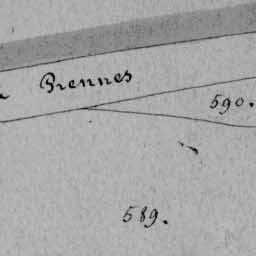 Brennes
590.
589.